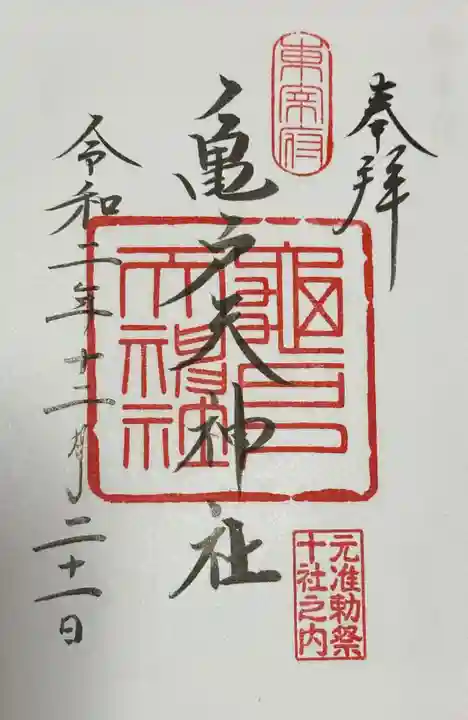 奉拝
東宰府
亀戸天神社
亀戸
天神社
元准勅祭
十社之内
令和二年十二月二十一日